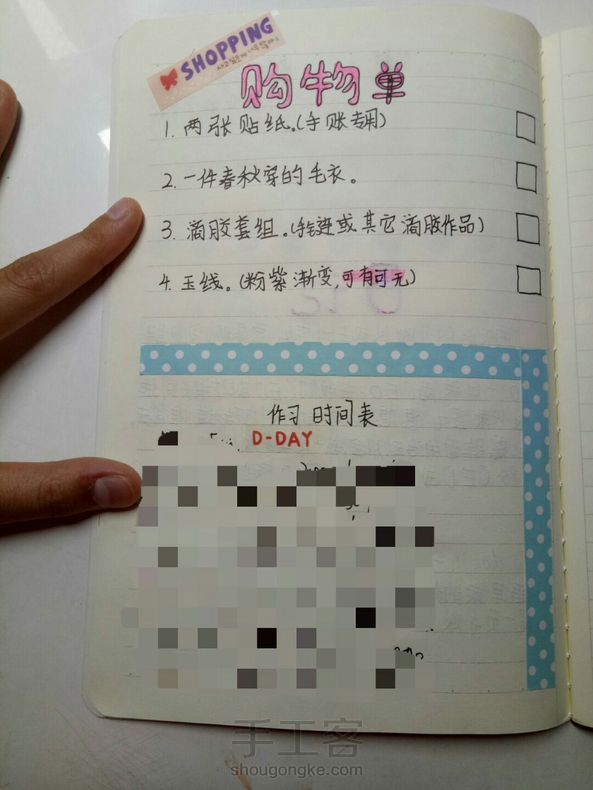 SHOPPING
购物单
1. 两张贴纸。(手账专用)
2. 一件春秋穿的毛衣。
3. 滴胶套组。(或其它滴胶作品)
4. 玉线。(粉紫渐变,可有可无)
作习时间表
D-DAY
手工客
shougongke.com